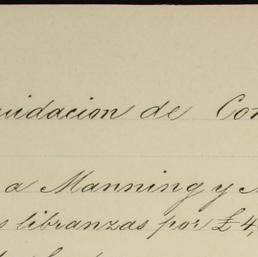 uidacion de Con
a Manning y M
s libranzas por £ 4,